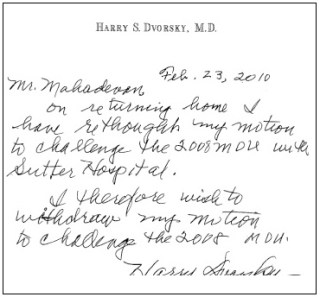 HARRY S. DVORSKY, M.D.
Feb. 23, 2010
Mr. Mahadevan
on returning home I
have rethough my motion
to challenge the 2008 MOU with
Sutter Hospital.
I therefore wish to
withdraw my motion
to challenge the 2008 MOU.
Harry Dvorsky